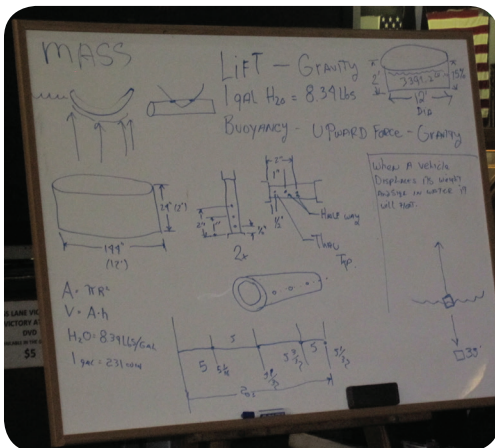 MASS
LiFT - GRAVity
1 gAL H20 = 8.34lbs
BuoyANCY - UPWARD FORCE - GRAVity
2'
15%
12'
DIA
WHEN A VEHICLE
DISPLACES ITS WEIGHT
IN WATER IT
will float.
24" (2')
144"
(12')
2"
1"
2x
2"
1"
HALF WAY
THRU
Top.
A = πR²
V = A·h
H2O = 8.34LBS/GAL
1 gal = 231
5
5
5
35'
VICTORY
DVD
$5